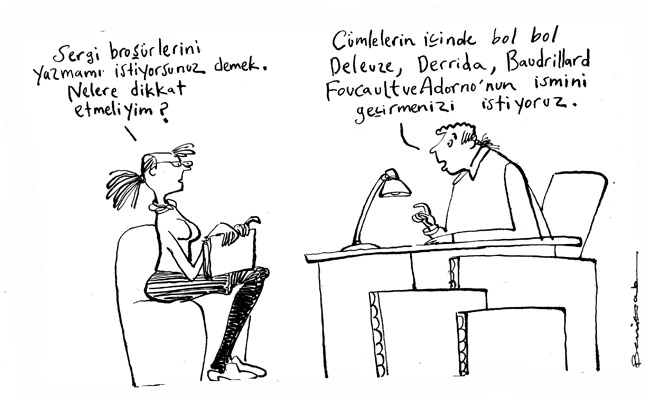 Sergi broşürlerini
yazmamı istiyorsunuz demek.
Nelere dikkat
etmeliyim?
Cümlelerin içinde bol bol
Deleuze, Derrida, Baudrillard
Foucault ve Adorno'nun ismini
geçirmenizi istiyoruz.